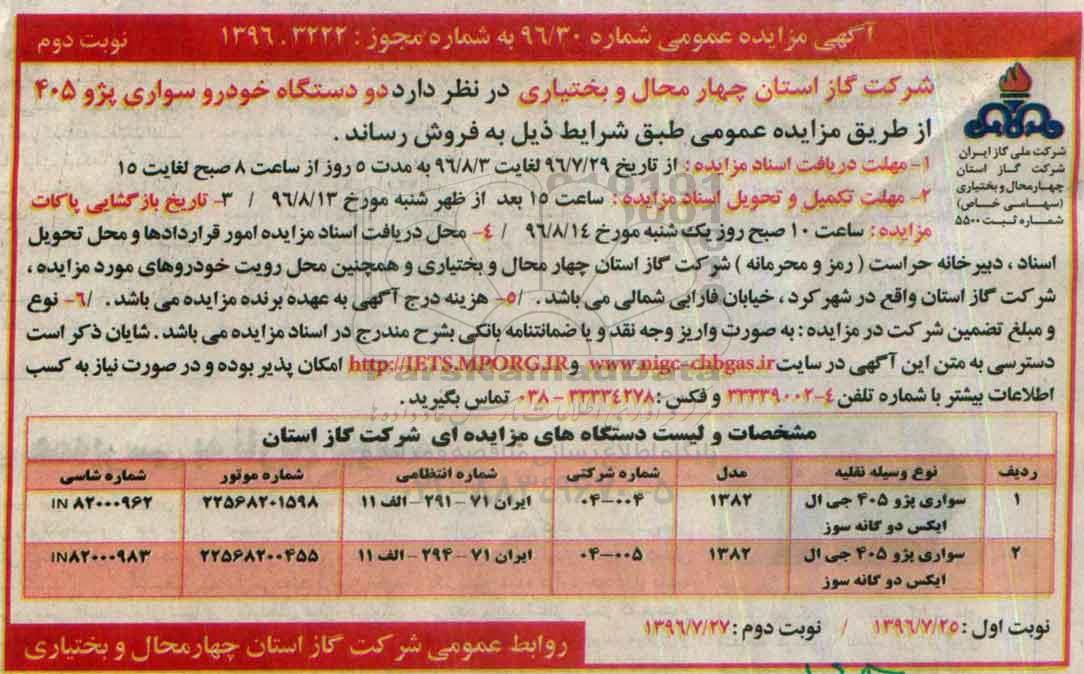 آگهی مزایده عمومی شماره ۹۶/۳۰ به شماره مجوز : ۱۳۹۶.۳۲۲۲
نوبت دوم
شرکت ملی گاز ایران
شرکت گاز استان
چهارمحال و بختیاری
(سهامی خاص)
شماره ثبت ۵۵۰۰
شرکت گاز استان چهار محال و بختیاری در نظر دارد دو دستگاه خودرو سواری پژو ۴۰۵
از طریق مزایده عمومی طبق شرایط ذیل به فروش رساند .
۱- مهلت دریافت اسناد مزایده : از تاریخ ۹۶/۷/۲۹ لغایت ۹۶/۸/۳ به مدت ۵ روز از ساعت ۸ صبح لغایت ۱۵
۲- مهلت تکمیل و تحویل اسناد مزایده : ساعت ۱۵ بعد از ظهر شنبه مورخ ۹۶/۸/۱۳ / ۳- تاریخ بازگشایی پاکات
مزایده : ساعت ۱۰ صبح روز یک شنبه مورخ ۹۶/۸/۱۴ / ۴- محل دریافت اسناد مزایده امور قراردادها و محل تحویل
اسناد ، دبیرخانه حراست ( رمز و محرمانه ) شرکت گاز استان چهار محال و بختیاری و همچنین محل رویت خودروهای مورد مزایده ،
شرکت گاز استان واقع در شهرکرد ، خیابان فارابی شمالی می باشد . /۵- هزینه درج آگهی به عهده برنده مزایده می باشد . /۶- نوع
و مبلغ تضمین شرکت در مزایده : به صورت واریز وجه نقد و یا ضمانتنامه بانکی بشرح مندرج در اسناد مزایده می باشد . شایان ذکر است
دسترسی به متن این آگهی در سایت www.nigc-chbgas.ir و http://IETS.MPORG.IR امکان پذیر بوده و در صورت نیاز به کسب
اطلاعات بیشتر با شماره تلفن ۴-۳۳۳۳۹۰۰۲ و فکس : ۳۳۳۳۴۲۷۸ - ۰۳۸ تماس بگیرید .
مشخصات و لیست دستگاه های مزایده ای شرکت گاز استان
ردیف نوع وسیله نقلیه مدل شماره شرکتی شماره انتظامی شماره موتور شماره شاسی
۱ سواری پژو ۴۰۵ جی ال ایکس دو گانه سوز ۱۳۸۲ ۰۴-۰۰۴ ایران ۷۱ – ۲۹۱ – الف ۱۱ ۲۲۵۶۸۲۰۱۵۹۸ IN ۸۲۰۰۰۹۶۲
۲ سواری پژو ۴۰۵ جی ال ایکس دو گانه سوز ۱۳۸۲ ۰۴-۰۰۵ ایران ۷۱ – ۲۹۴ – الف ۱۱ ۲۲۵۶۸۲۰۰۴۵۵ IN۸۲۰۰۰۹۸۳
نوبت اول : ۱۳۹۶/۷/۲۵ / نوبت دوم : ۱۳۹۶/۷/۲۷
روابط عمومی شرکت گاز استان چهارمحال و بختیاری